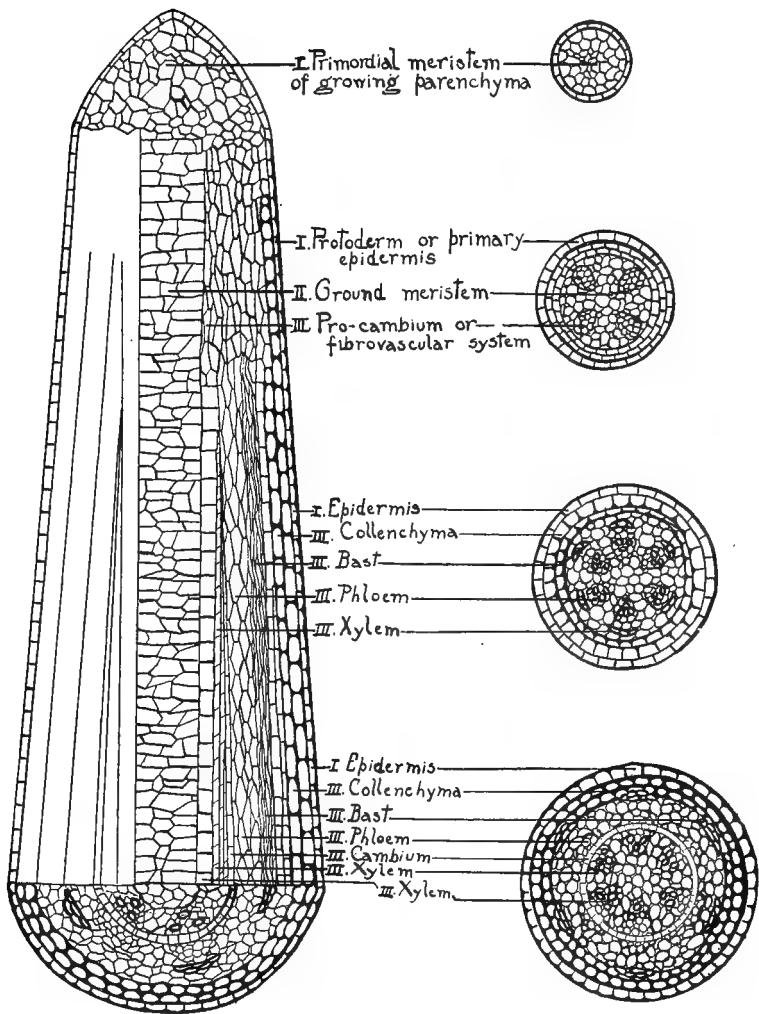 I. Primordial meristem
of growing parenchyma
I. Protoderm or primary
epidermis
II. Ground meristem
III Pro-cambium or
fibrovascular system
I. Epidermis
III. Collenchyma
III. Bast
III. Phloem
III. Xylem
I Epidermis
III. Collenchyma
III. Bast
III. Phloem
III. Cambium
III. Xylem
III. Xylem